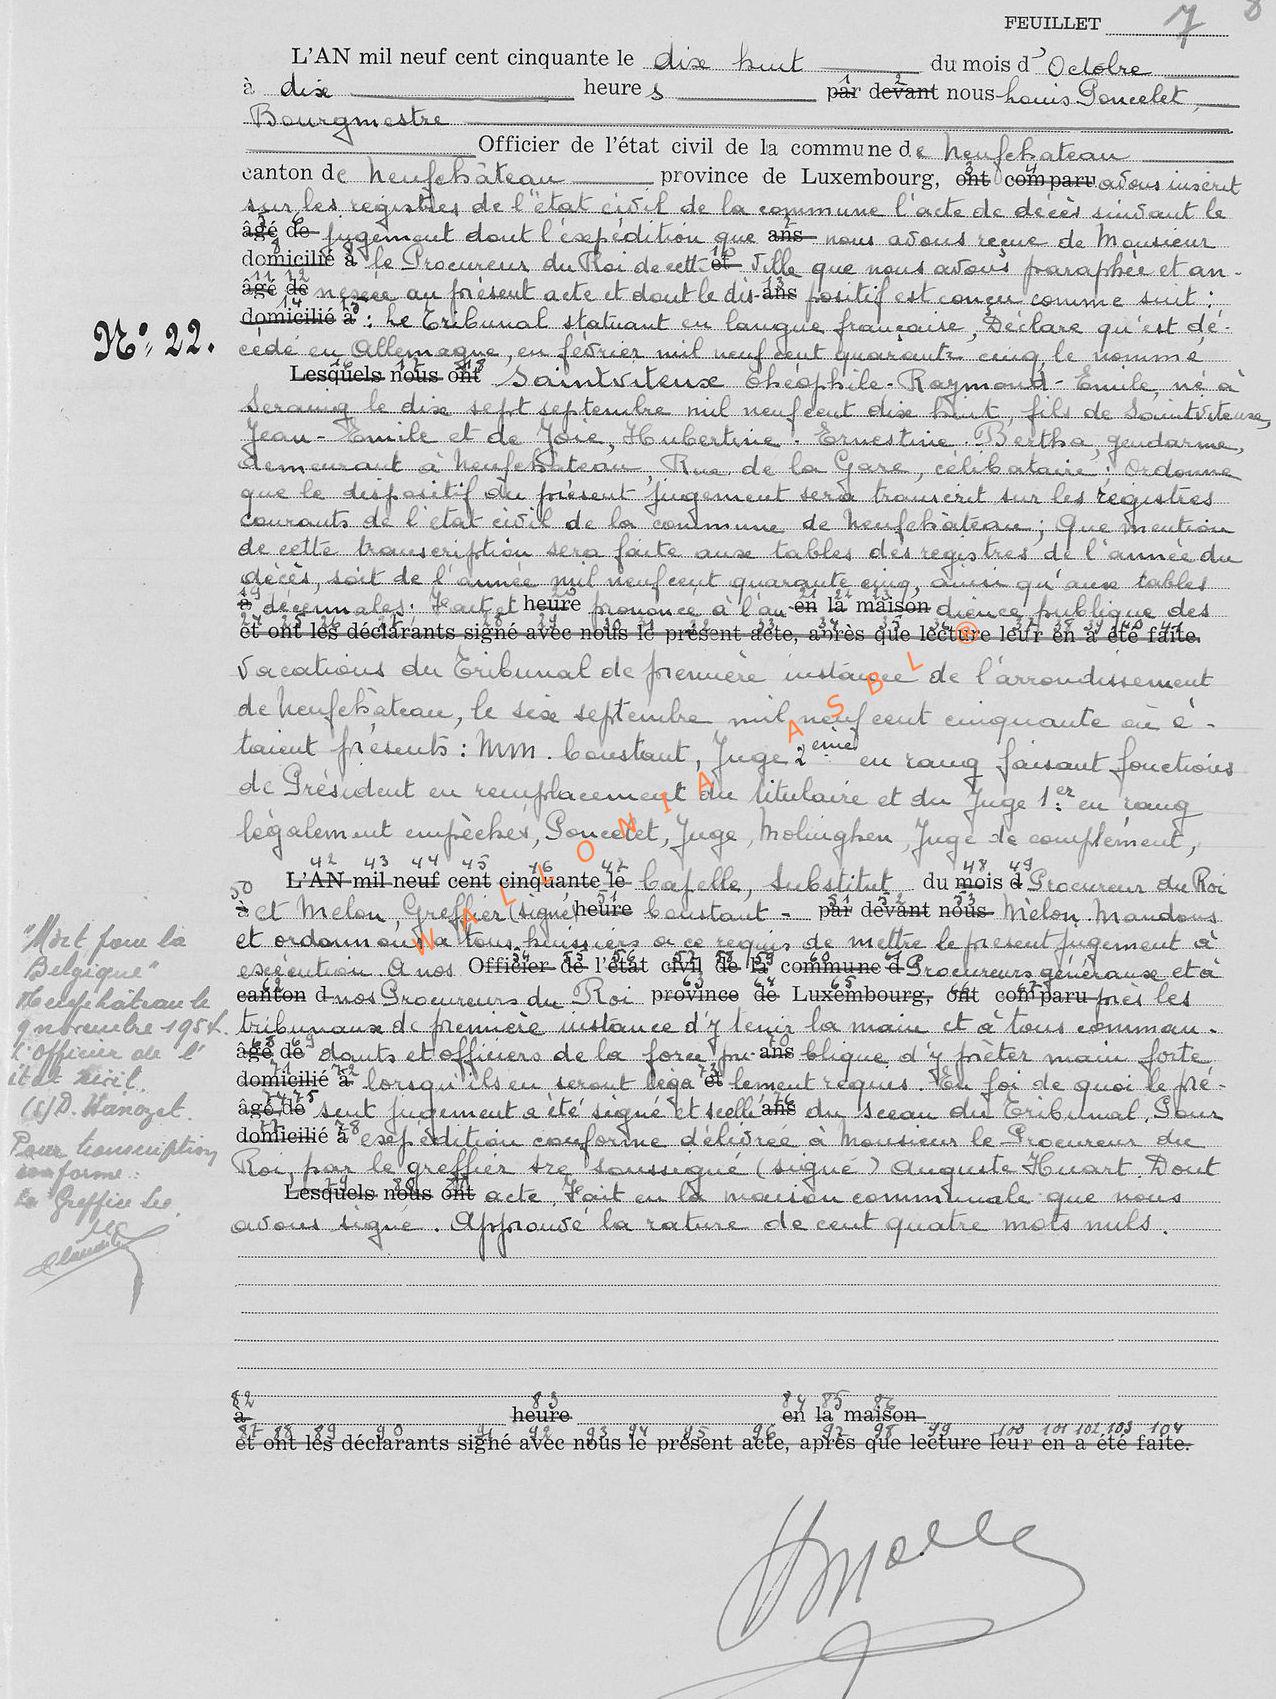 FEUILLET 7 8
L'AN mil neuf cent cinquante le dix huit du mois d' Octobre
à dix heure s par devant nous Louis Poncelet,
Bourgmestre
Officier de l'état civil de la commune de Neufchateau
canton de Neufchâteau province de Luxembourg, ont comparu avons inscrit
sur les registres de l'état civil de la commune l'acte de décès suivant le
âgé de jugement dont l'éxpédition que ans nous avons reçue de Monsieur
domicilié à le Procureur du Roi de cette et ville que nous avons paraphée et an-
âgé de nexée au présent acte et dont le dis- ans positif est conçu comme suit :
domicilié à : Le Tribunal statuant en langue française, Déclare qu'est dé-
N° 22.
cédé en Allemagne, en février mil neuf cent quarante cinq le nommé
Lesquels nous ont Saintviteux Théophile-Raymond-Emile, né à
Seraing le dix sept septembre mil neuf cent dix huit, fils de Saintviteux,
Jean-Emile et de Joie, Hubertine-Ernestine-Bertha, gendarme,
demeurant à Neufchâteau, Rue de la Gare, célibataire ; Ordonne
que le dispositif du présent jugement sera transcrit sur les registres
courants de l'état civil de la commune de Neufchâteau ; Que mention
de cette transcription sera faite aux tables des registres de l'année du
décès, soit de l'année mil neuf cent quarante cinq, ainsi qu'aux tables
à décennales. Fait et heure prononcé à l'au- en la maison dience publique des
et ont les déclarants signé avec nous le présent acte, après que lecture leur en a été faite.
vacations du Tribunal de première instance de l'arrondissement
de Neufchâteau, le six septembre mil neuf cent cinquante où é-
taient présents : MM. Constant, Juge 2ème en rang faisant fonctions
de Président en remplacement du titulaire et du Juge 1er en rang
légalement empêchés, Poncelet, Juge, Molinghen, Juge de complément,
L'AN mil neuf cent cinquante le Capelle, Substitut du mois d Procureur du Roi
à et Melon, Greffier (signé) heure Constant - par devant nous Mélon. Mandons
et ordonnons à tous huissiers à ce requis de mettre le présent jugement à
exécution. A nos Officier de l'état civil de la commune d Procureurs généraux et à
canton d nos Procureurs du Roi province de Luxembourg, ont comparu près les
tribunaux de première instance d'y tenir la main et à tous comman-
âgé de dants et officiers de la force pu- ans blique d'y prêter main forte
domicilié à lorsqu'ils en seront léga et lement requis. En foi de quoi le pré-
âgé de sent jugement a été signé et scellé ans du sceau du Tribunal. Pour
domicilié à expédition conforme délivrée à Monsieur le Procureur du
Roi, par le greffier sre soussigné (signé) Auguste Huart. Dont
Lesquels nous ont acte. Fait en la maison communale que nous
avons signé. Approuvé la rature de cent quatre mots nuls.
à heure en la maison
et ont les déclarants signé avec nous le présent acte, après que lecture leur en a été faite.
"Mort pour la
Belgique"
Neufchâteau le
9 novembre 1954.
L'Officier de l'
état civil.
(s) D. Hanozet.
Pour transcription
conforme :
Le Greffier
WALLONIA ASBL ®